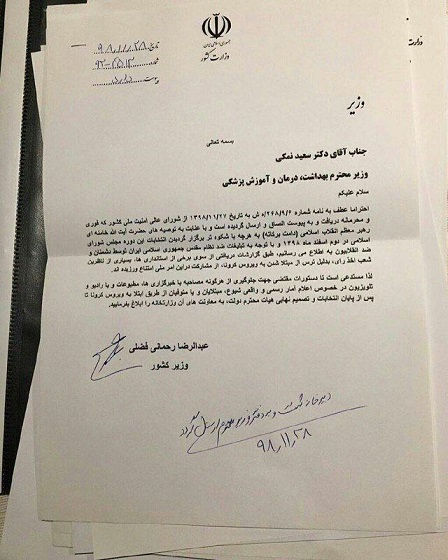 جمهوری اسلامی ایران
وزارت کشور
تاریخ ۹۸/۱۱/۲۸
شماره
پیوست دارد
وزارت
وزیر
بسمه تعالی
جناب آقای دکتر سعید نمکی
وزیر محترم بهداشت، درمان و آموزش پزشکی
سلام علیکم
احتراما عطف به نامه شماره ۲۶۸/۹/۶/ه ش به تاریخ ۱۳۹۸/۱۱/۲۷ از شورای عالی امنیت ملی کشور که فوری
و محرمانه دریافت و به پیوست الصاق و ارسال گردیده است و با عنایت به توصیه های حضرت آیت الله خامنه ای
رهبر معظم انقلاب اسلامی (دامت برکاته) به هرچه با شکوه تر برگزار گردیدن انتخابات این دوره مجلس شورای
اسلامی در دوم اسفند ماه ۱۳۹۸ و با توجه به تبلیغات ضد نظام مقدس جمهوری اسلامی ایران توسط دشمنان و
ضد انقلابیون به اطلاع می رسانیم، طبق گزارشات دریافتی از سوی برخی از استانداری ها، بسیاری از ناظرین
شعب اخذ رای، بدلیل ترس از مبتلا شدن به ویروس کرونا، از مشارکت در این امر ملی امتناع ورزیده اند.
لذا مستدعی است تا دستورات مقتضی جهت جلوگیری از هرگونه مصاحبه با خبرگزاری ها، مطبوعات و یا رادیو و
تلویزیون در خصوص اعلام آمار رسمی و واقعی شیوع، مبتلایان و یا متوفیان از طریق ابتلا به ویروس کرونا تا
پس از پایان انتخابات و تصمیم نهایی هیات محترم دولت، به معاونت های آن وزارتخانه را ابلاغ بفرمایید.
عبدالرضا رحمانی فضلی
وزیر کشور
دبیرخانه ثبت و به دفتر وزیر محترم ارسال گردد
۹۸/۱۱/۲۸